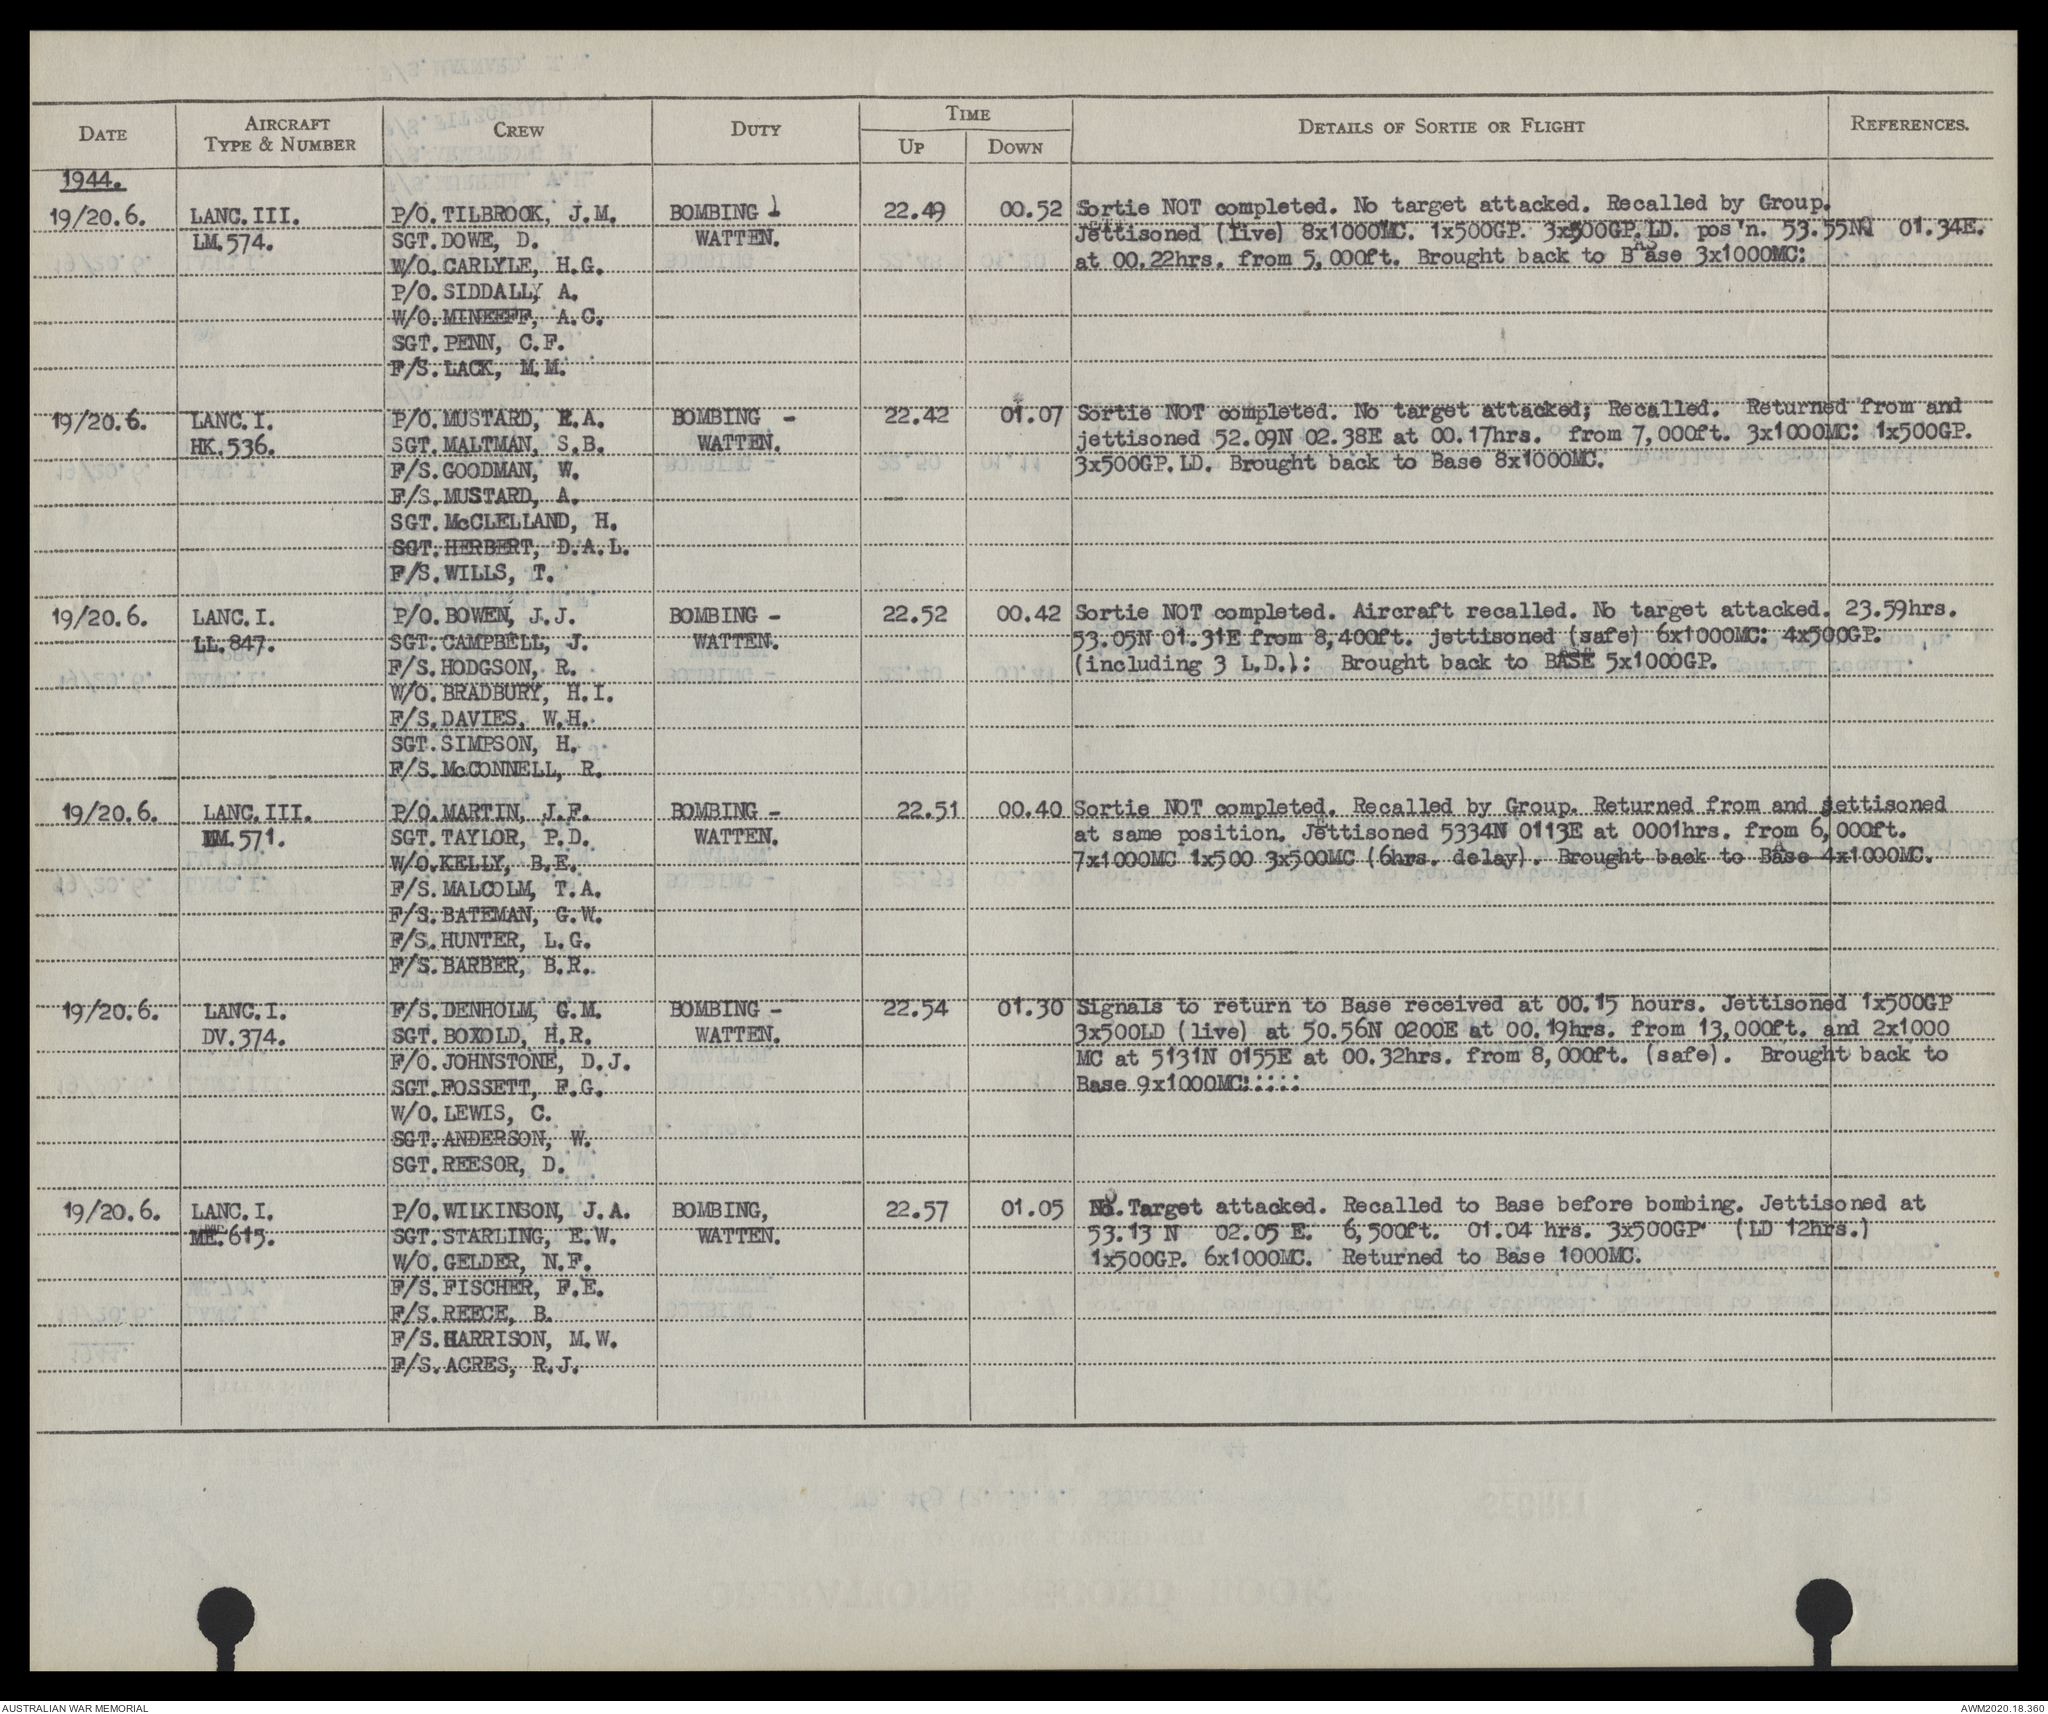 DATE AIRCRAFT TYPE & NUMBER CREW DUTY TIME UP DOWN DETAILS OF SORTIE OR FLIGHT REFERENCES.
1944.
19/20.6. LANC.III. P/O. TILBROOK, J.M. BOMBING - 22.49 00.52 Sortie NOT completed. No target attacked. Recalled by Group.
LM.574. SGT. DOWE, D. WATTEN. Jettisoned (live) 8x1000MC. 1x500GP. 3x500GP.LD. pos'n. 53.55N 01.34E.
W/O. CARLYLE, H.G. at 00.22hrs. from 5,000ft. Brought back to Base 3x1000MC:
P/O. SIDDALLY A.
W/O. MINEEFF, A.C.
SGT. PENN, C.F.
F/S. LACK, M.M.
19/20.6. LANC.I. P/O. MUSTARD, E.A. BOMBING - 22.42 01.07 Sortie NOT completed. No target attacked; Recalled. Returned from and
HK.536. SGT. MALTMAN, S.B. WATTEN. jettisoned 52.09N 02.38E at 00.17hrs. from 7,000ft. 3x1000MC: 1x500GP.
F/S. GOODMAN, W. 3x500GP.LD. Brought back to Base 8x1000MC.
F/S. MUSTARD, A.
SGT. McCLELLAND, H.
SGT. HERBERT, D.A.L.
F/S. WILLS, T.
19/20.6. LANC.I. P/O. BOWEN, J.J. BOMBING - 22.52 00.42 Sortie NOT completed. Aircraft recalled. No target attacked. 23.59hrs.
LL.847. SGT. CAMPBELL, J. WATTEN. 53.05N 01.31E from 8,400ft. jettisoned (safe) 6x1000MC: 4x500GP.
F/S. HODGSON, R. (including 3 L.D.): Brought back to BASE 5x1000GP.
W/O. BRADBURY, H.I.
F/S. DAVIES, W.H.
SGT. SIMPSON, H.
F/S. McCONNELL, R.
19/20.6. LANC.III. P/O. MARTIN, J.F. BOMBING - 22.51 00.40 Sortie NOT completed. Recalled by Group. Returned from and jettisoned
.571. SGT. TAYLOR, P.D. WATTEN. at same position. Jettisoned 5334N 0113E at 0001hrs. from 6,000ft.
W/O. KELLY, B.E. 7x1000MC 1x500 3x500MC (6hrs. delay). Brought back to Base 4x1000MC.
F/S. MALCOLM, T.A.
F/S. BATEMAN, G.W.
F/S. HUNTER, L.G.
F/S. BARBER, B.R.
19/20.6. LANC.I. F/S. DENHOLM, G.M. BOMBING - 22.54 01.30 Signals to return to Base received at 00.15 hours. Jettisoned 1x500GP
DV.374. SGT. BOXOLD, H.R. WATTEN. 3x500LD (live) at 50.56N 0200E at 00.19hrs. from 13,000ft. and 2x1000
F/O. JOHNSTONE, D.J. MC at 5131N 0155E at 00.32hrs. from 8,000ft. (safe). Brought back to
SGT. FOSSETT, F.G. Base 9x1000MC:::::
W/O. LEWIS, C.
SGT. ANDERSON, W.
SGT. REESOR, D.
19/20.6. LANC.I. P/O. WILKINSON, J.A. BOMBING, 22.57 01.05 No. Target attacked. Recalled to Base before bombing. Jettisoned at
ME.615. SGT. STARLING, E.W. WATTEN. 53.13 N 02.05 E. 6,500ft. 01.04 hrs. 3x500GP (LD 12hrs.)
W/O. GELDER, N.F. 1x500GP. 6x1000MC. Returned to Base 1000MC.
F/S. FISCHER, F.E.
F/S. REECE, B.
F/S. HARRISON, M.W.
F/S. ACRES, R.J.
AUSTRALIAN WAR MEMORIAL AWM2020.18.360